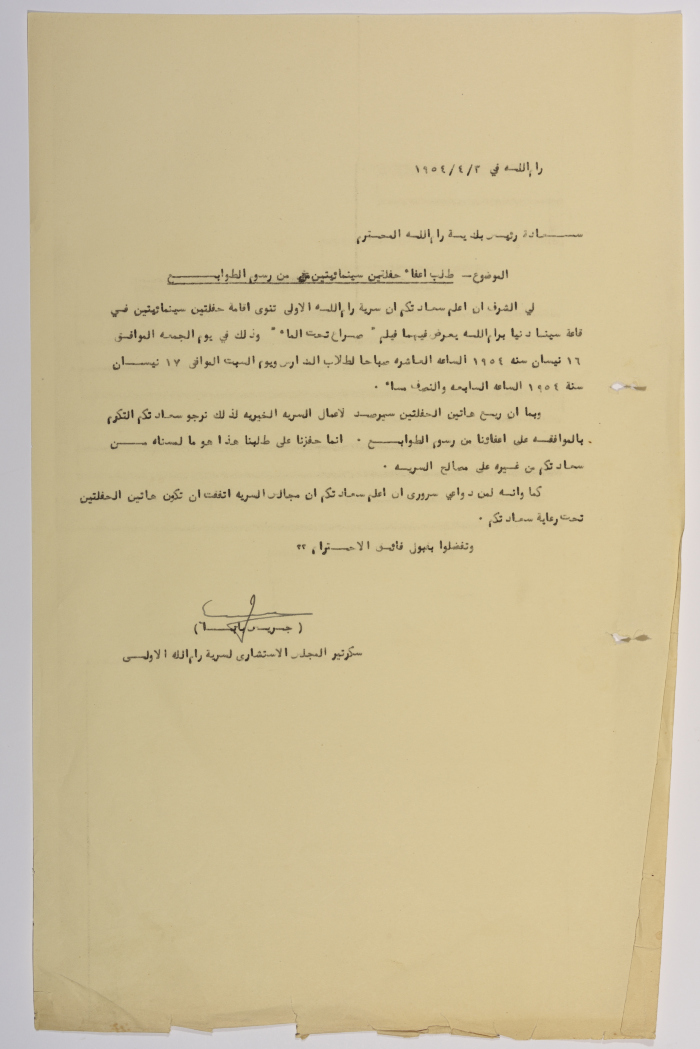 رام اللــه في ١٩٥٤/٤/٢
ســـعادة رئيس بلديــة رام اللــه المحترم
الموضوع — طلب اعفاء حفلتين سينمائيتين من رسوم الطوابـــع
لي الشرف ان اعلم سعادتكم ان سرية رام اللــه الاولى تنوى اقامة حفلتين سينمائيتين فــي
قاعة سينما دنيا برام اللــه يعرض فيهما فيلم " صراع تحت الماء " وذلك في يوم الجمعه الموافــق
١٦ نيسان سنه ١٩٥٤ الساعه العاشره صباحا لطلاب المدارس ويوم السبت الموافق ١٧ نيســان
سنة ١٩٥٤ الساعه السابعه والنصف مساء ٠
وبما ان ريــع هاتين الحفلتين سيرصد لاعمال السريه الخيريه لذلك نرجو سعادتكم التكرم
بالموافقــه على اعفائنا من رسوم الطوابــع ٠ انما حفزنا على طلبنا هذا هو ما لمسناه مــن
سعادتكم من غيره على مصالح السريــه ٠
كما وانــه لمن دواعي سرورى ان اعلم سعادتكم ان مجالس السريه اتفقت ان تكون هاتين الحفلتين
تحت رعاية سعادتكم ٠
وتفضلوا بقبول فائــق الاحــترام ؟؟
سكرتير المجلس الاستشارى لسرية رام الله الاولــى